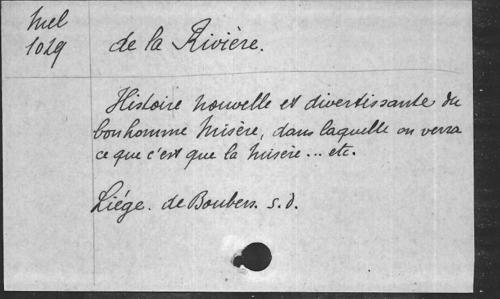 Mel
1029
de la Rivière.
Histoire nouvelle et divertissante du
bonhomme Misère, dans laquelle on verra
ce que c'est que la Misère ... etc.
Liége. de Boubers. s.d.